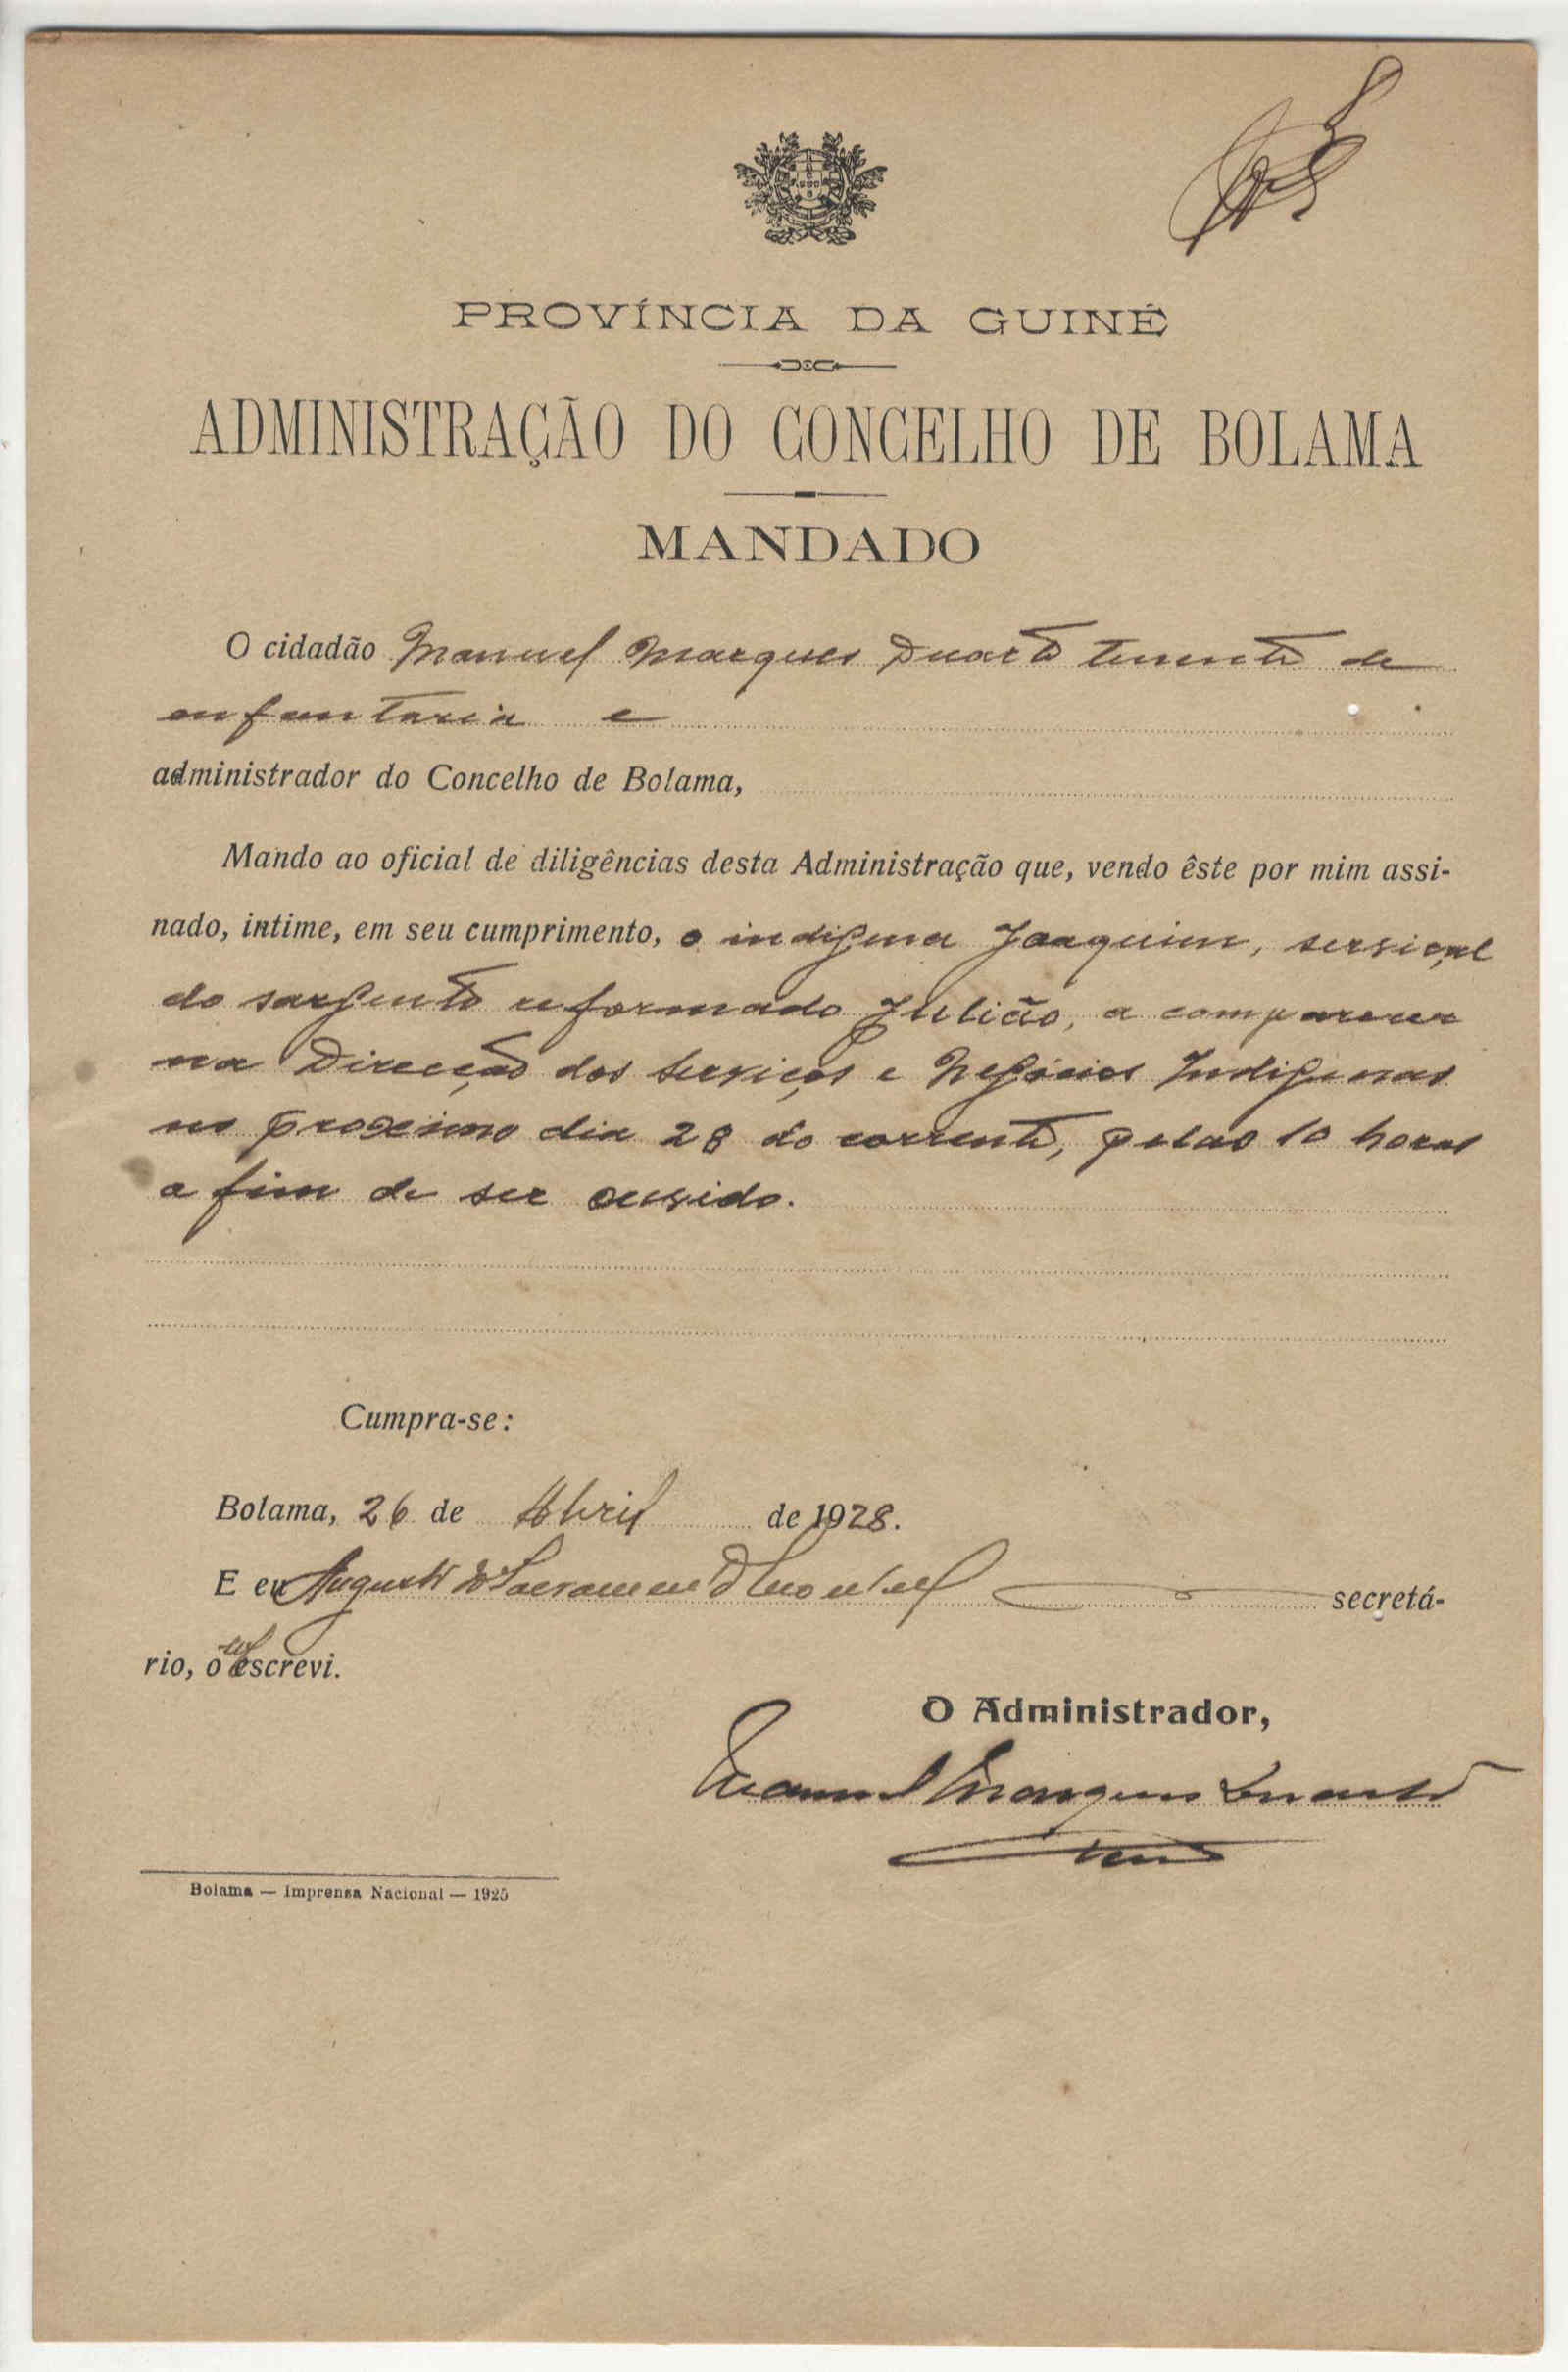 PROVÍNCIA DA GUINÉ
ADMINISTRAÇÃO DO CONCELHO DE BOLAMA
MANDADO
O cidadão Manuel Marques Duarte tenente de
infantaria e
administrador do Concelho de Bolama,
Mando ao oficial de diligências desta Administração que, vendo êste por mim assi-
nado, intime, em seu cumprimento, o indigena Joaquim, serviçal
do sargento reformado Julião, a comparecer
na Direcção dos Serviços e Negócios Indigenas
no proximo dia 28 do corrente, pelas 10 horas
a fim de ser ouvido.
Cumpra-se:
Bolama, 26 de Abril de 1928.
E eu Augusto do Sacramento secretá-
rio, o escrevi.
O Administrador,
Manuel Marques Duarte
Bolama — Imprensa Nacional — 1925